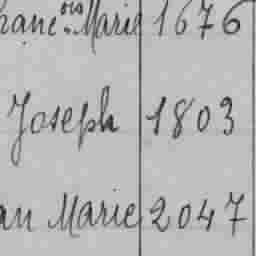 ranc.ois Marie 1676
Joseph 1803
an Marie 2047